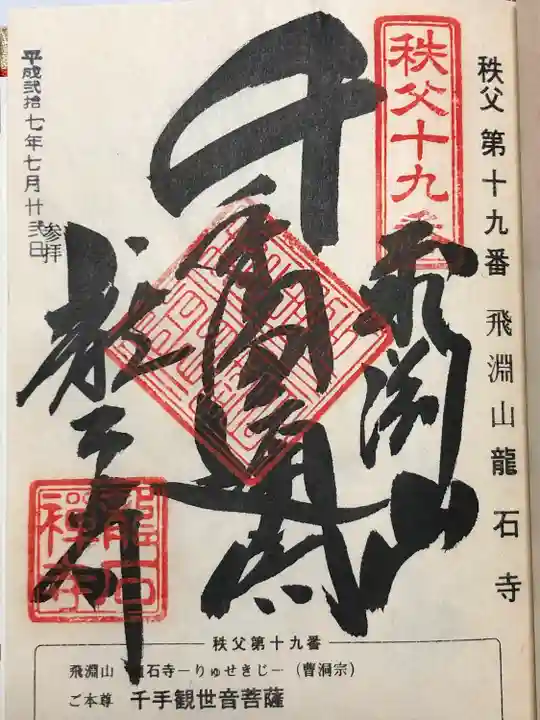 秩父 第十九番 飛淵山龍石寺
秩父十九番
飛淵山
千手
龍石寺
龍石禅寺
平成弐拾七年七月廿弐日
参拝
秩父第十九番
飛淵山 石寺ーりゅせきじー(曹洞宗)
ご本尊 千手観世音菩薩